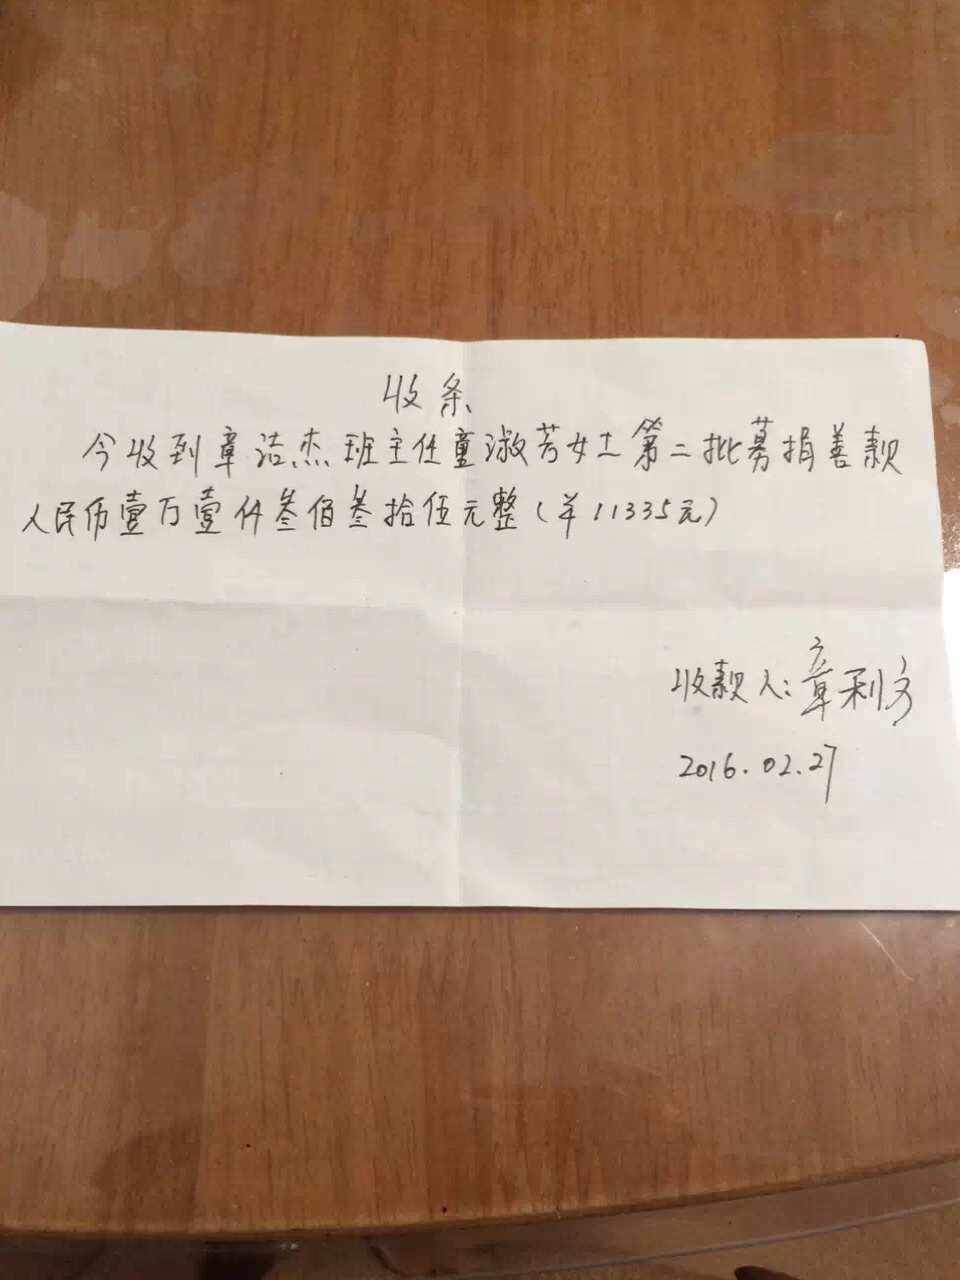 收条
今收到章洁杰班主任童淑芳女士第二批募捐善款
人民币壹万壹仟叁佰叁拾伍元整(￥11335元)
收款人:章利方
2016.02.27